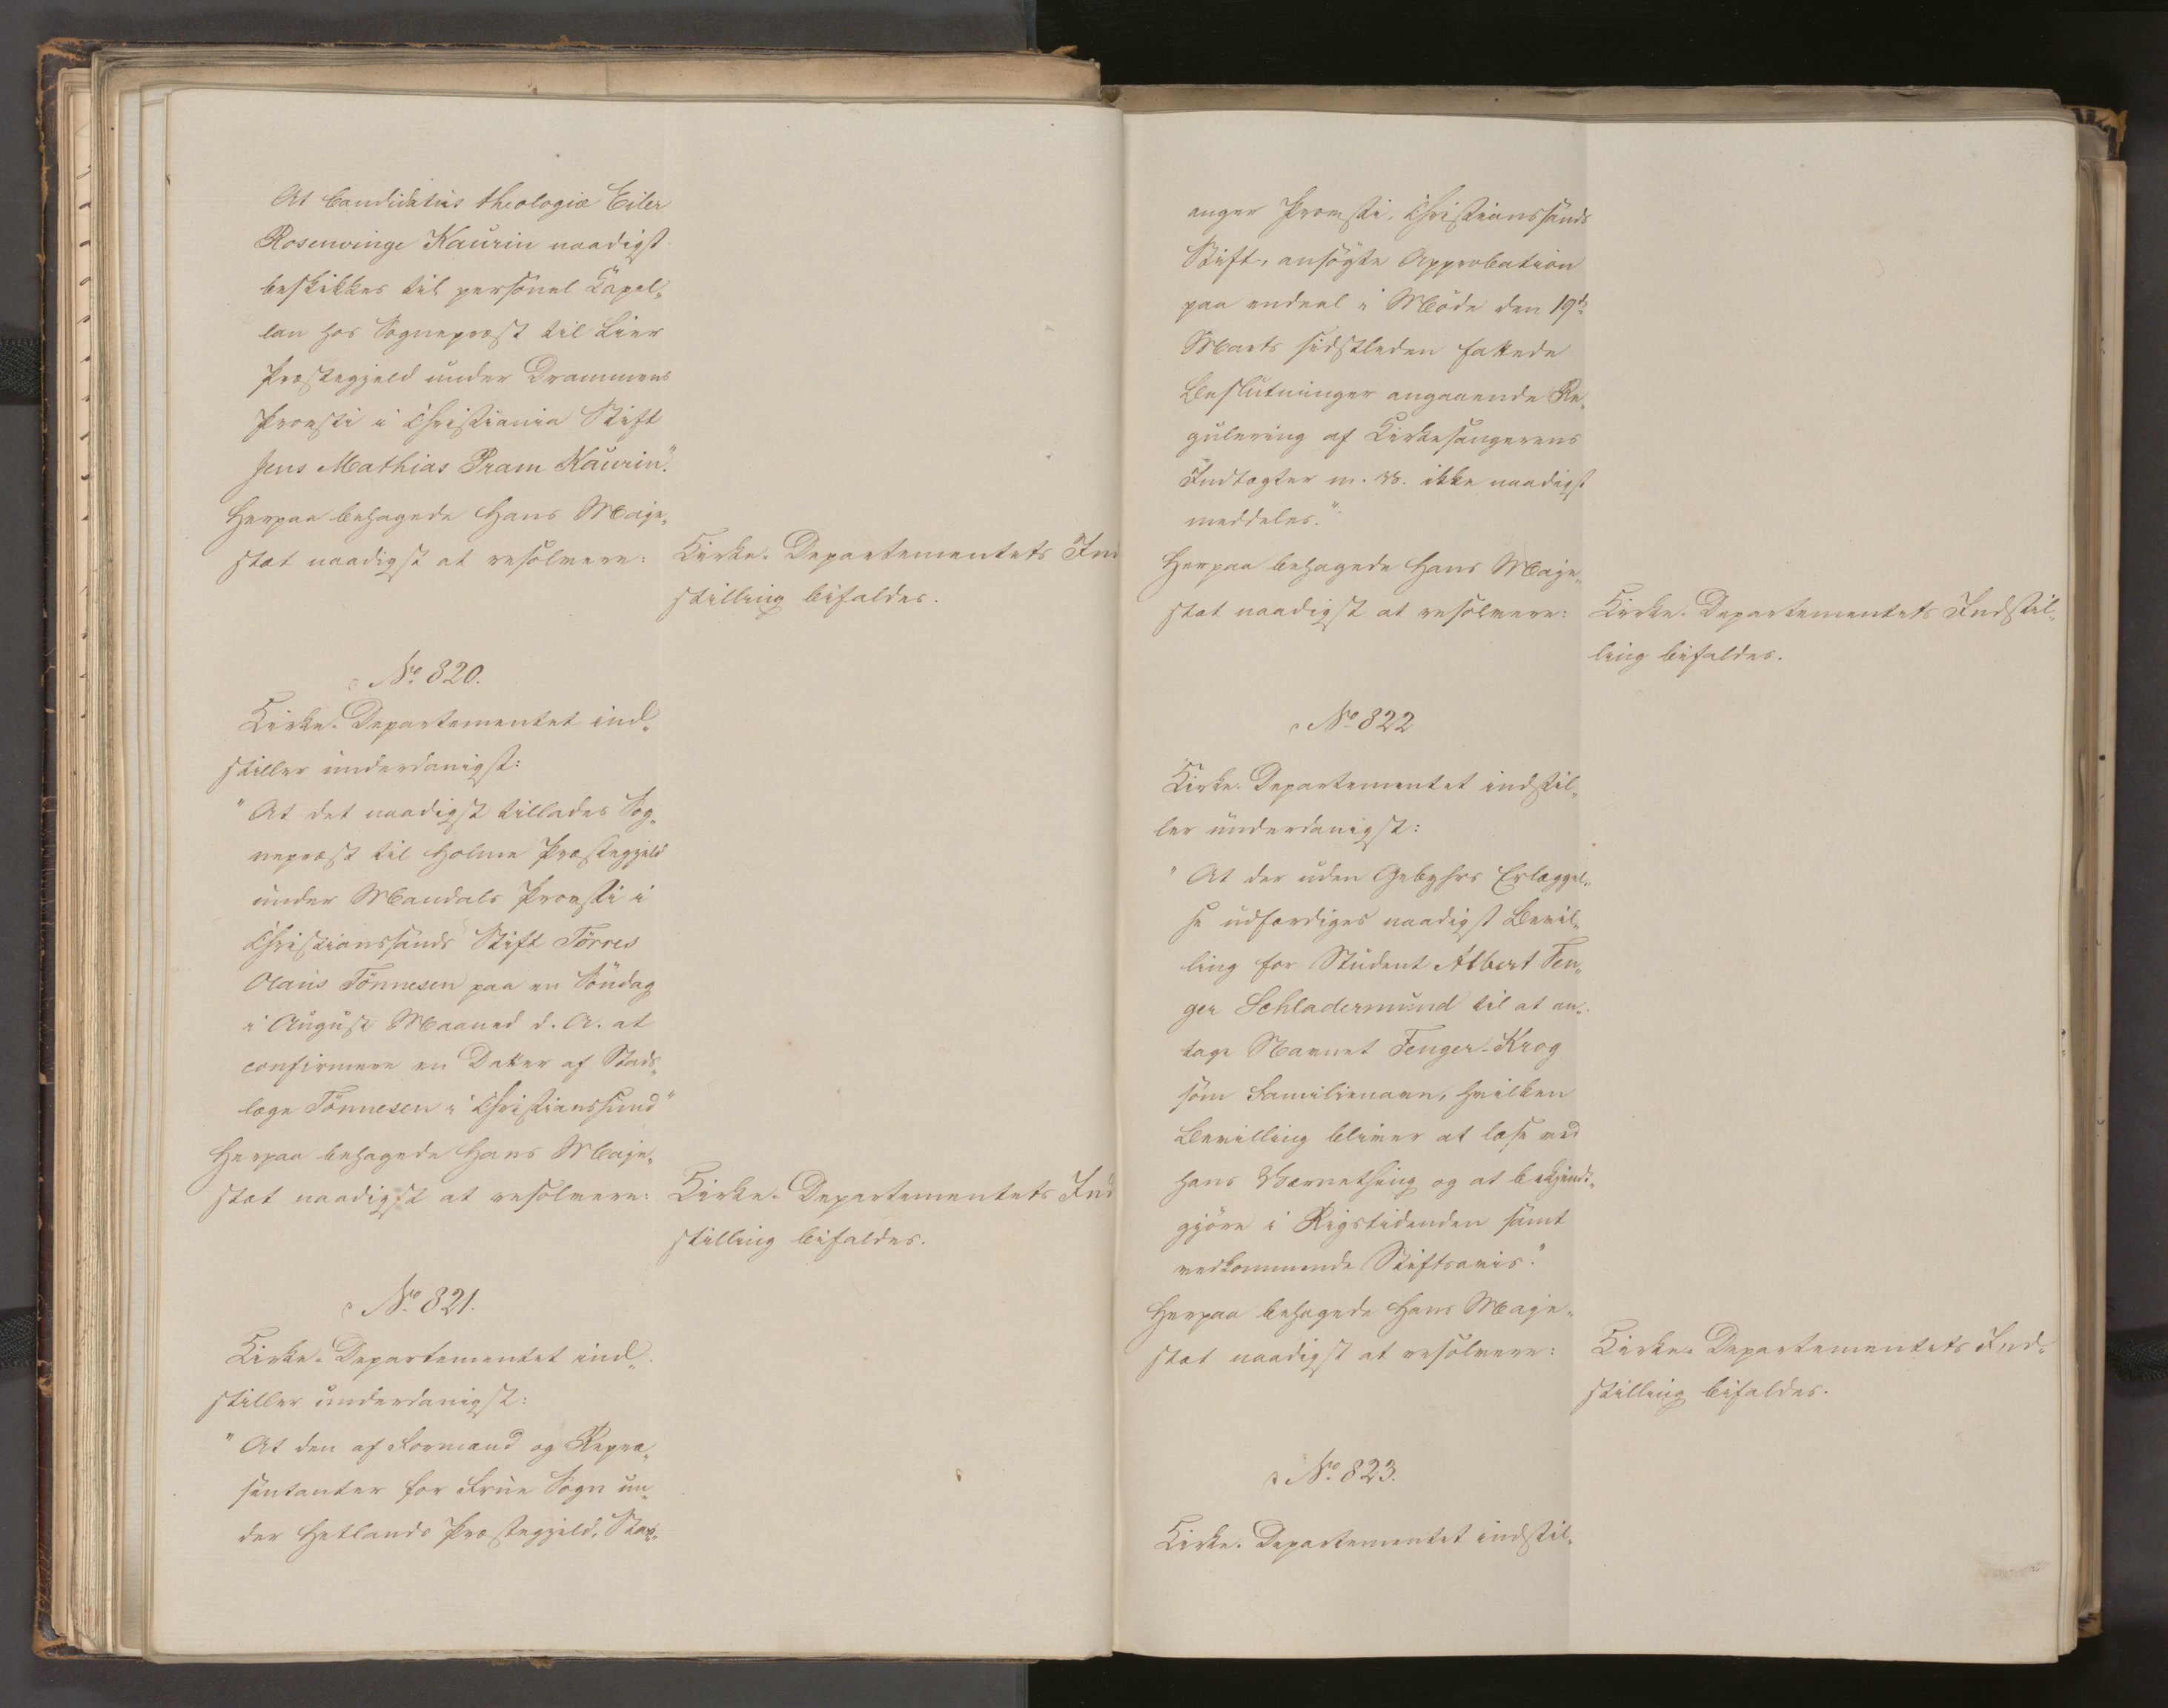 At Candidatus theologiæ Eiler
Rosenvinge Kaurin naadigst
beskikkes til personel Capel„
lan hos Sognepræst til Lier
Præstegjeld under Drammens
Provsti i Christiania Stift
Jens Mathias Pram Kaurin".
Herpaa behagede Hans Maje„
stæt naadigst at resolvere:
Kirke-Departementets Ind
stilling bifaldes.
No 820.
Kirke-Departementet ind„
stiller underdanigst:
"At det naadigst tillades Sog„
nepræst til Holme Præstegjeld
under Mandals Provsti i
Christianssands Stift Törres
Olaus Tönnesen paa en Söndag
i August Maaned d. A. at
confirmere en Datter af Stads„
læge Tönnesen i Christianssund"
Herpaa behagede Hans Maje„
stæt naadigst at resolvere:
Kirke-Departementets Ind
stilling bifaldes.
No 821.
Kirke-Departementet ind„
stiller underdanigst:
"At den af Formænd og Repræ„
sentanter for Frue Sogn un„
der Hetlands Præstegjeld, Stav„
anger Provsti, Christianssands
Stift, ansögte Approbation
paa endeel i Möde den 19de
Marts sidstleden fattede
Beslutninger angaaende Re„
gulering af Kirkesangerens
Indtægter m. V. ikke naadigst
meddeles."
Herpaa behagede Hans Maje„
stæt naadigst at resolvere:
Kirke-Departementets Indstil„
ling bifaldes.
No 822
Kirke-Departementet indstil„
ler underdanigst:
"At der uden Gebyhrs Erlæggel„
se udfærdiges naadigst Bevil„
ling for Student Albert Fen„
ger Schladermund til at an„
tage Navnet Fenger-Krog
som Familienavn, hvilken
Bevilling bliver at læse ved
hans Værnething og at bekjendt„
gjöre i Rigstidenden samt
vedkommende Stiftsavis."
Herpaa behagede Hans Maje„
stæt naadigst at resolvere:
Kirke-Departementets Ind„
stilling bifaldes.
No 823.
Kirke-Departementet indstil„